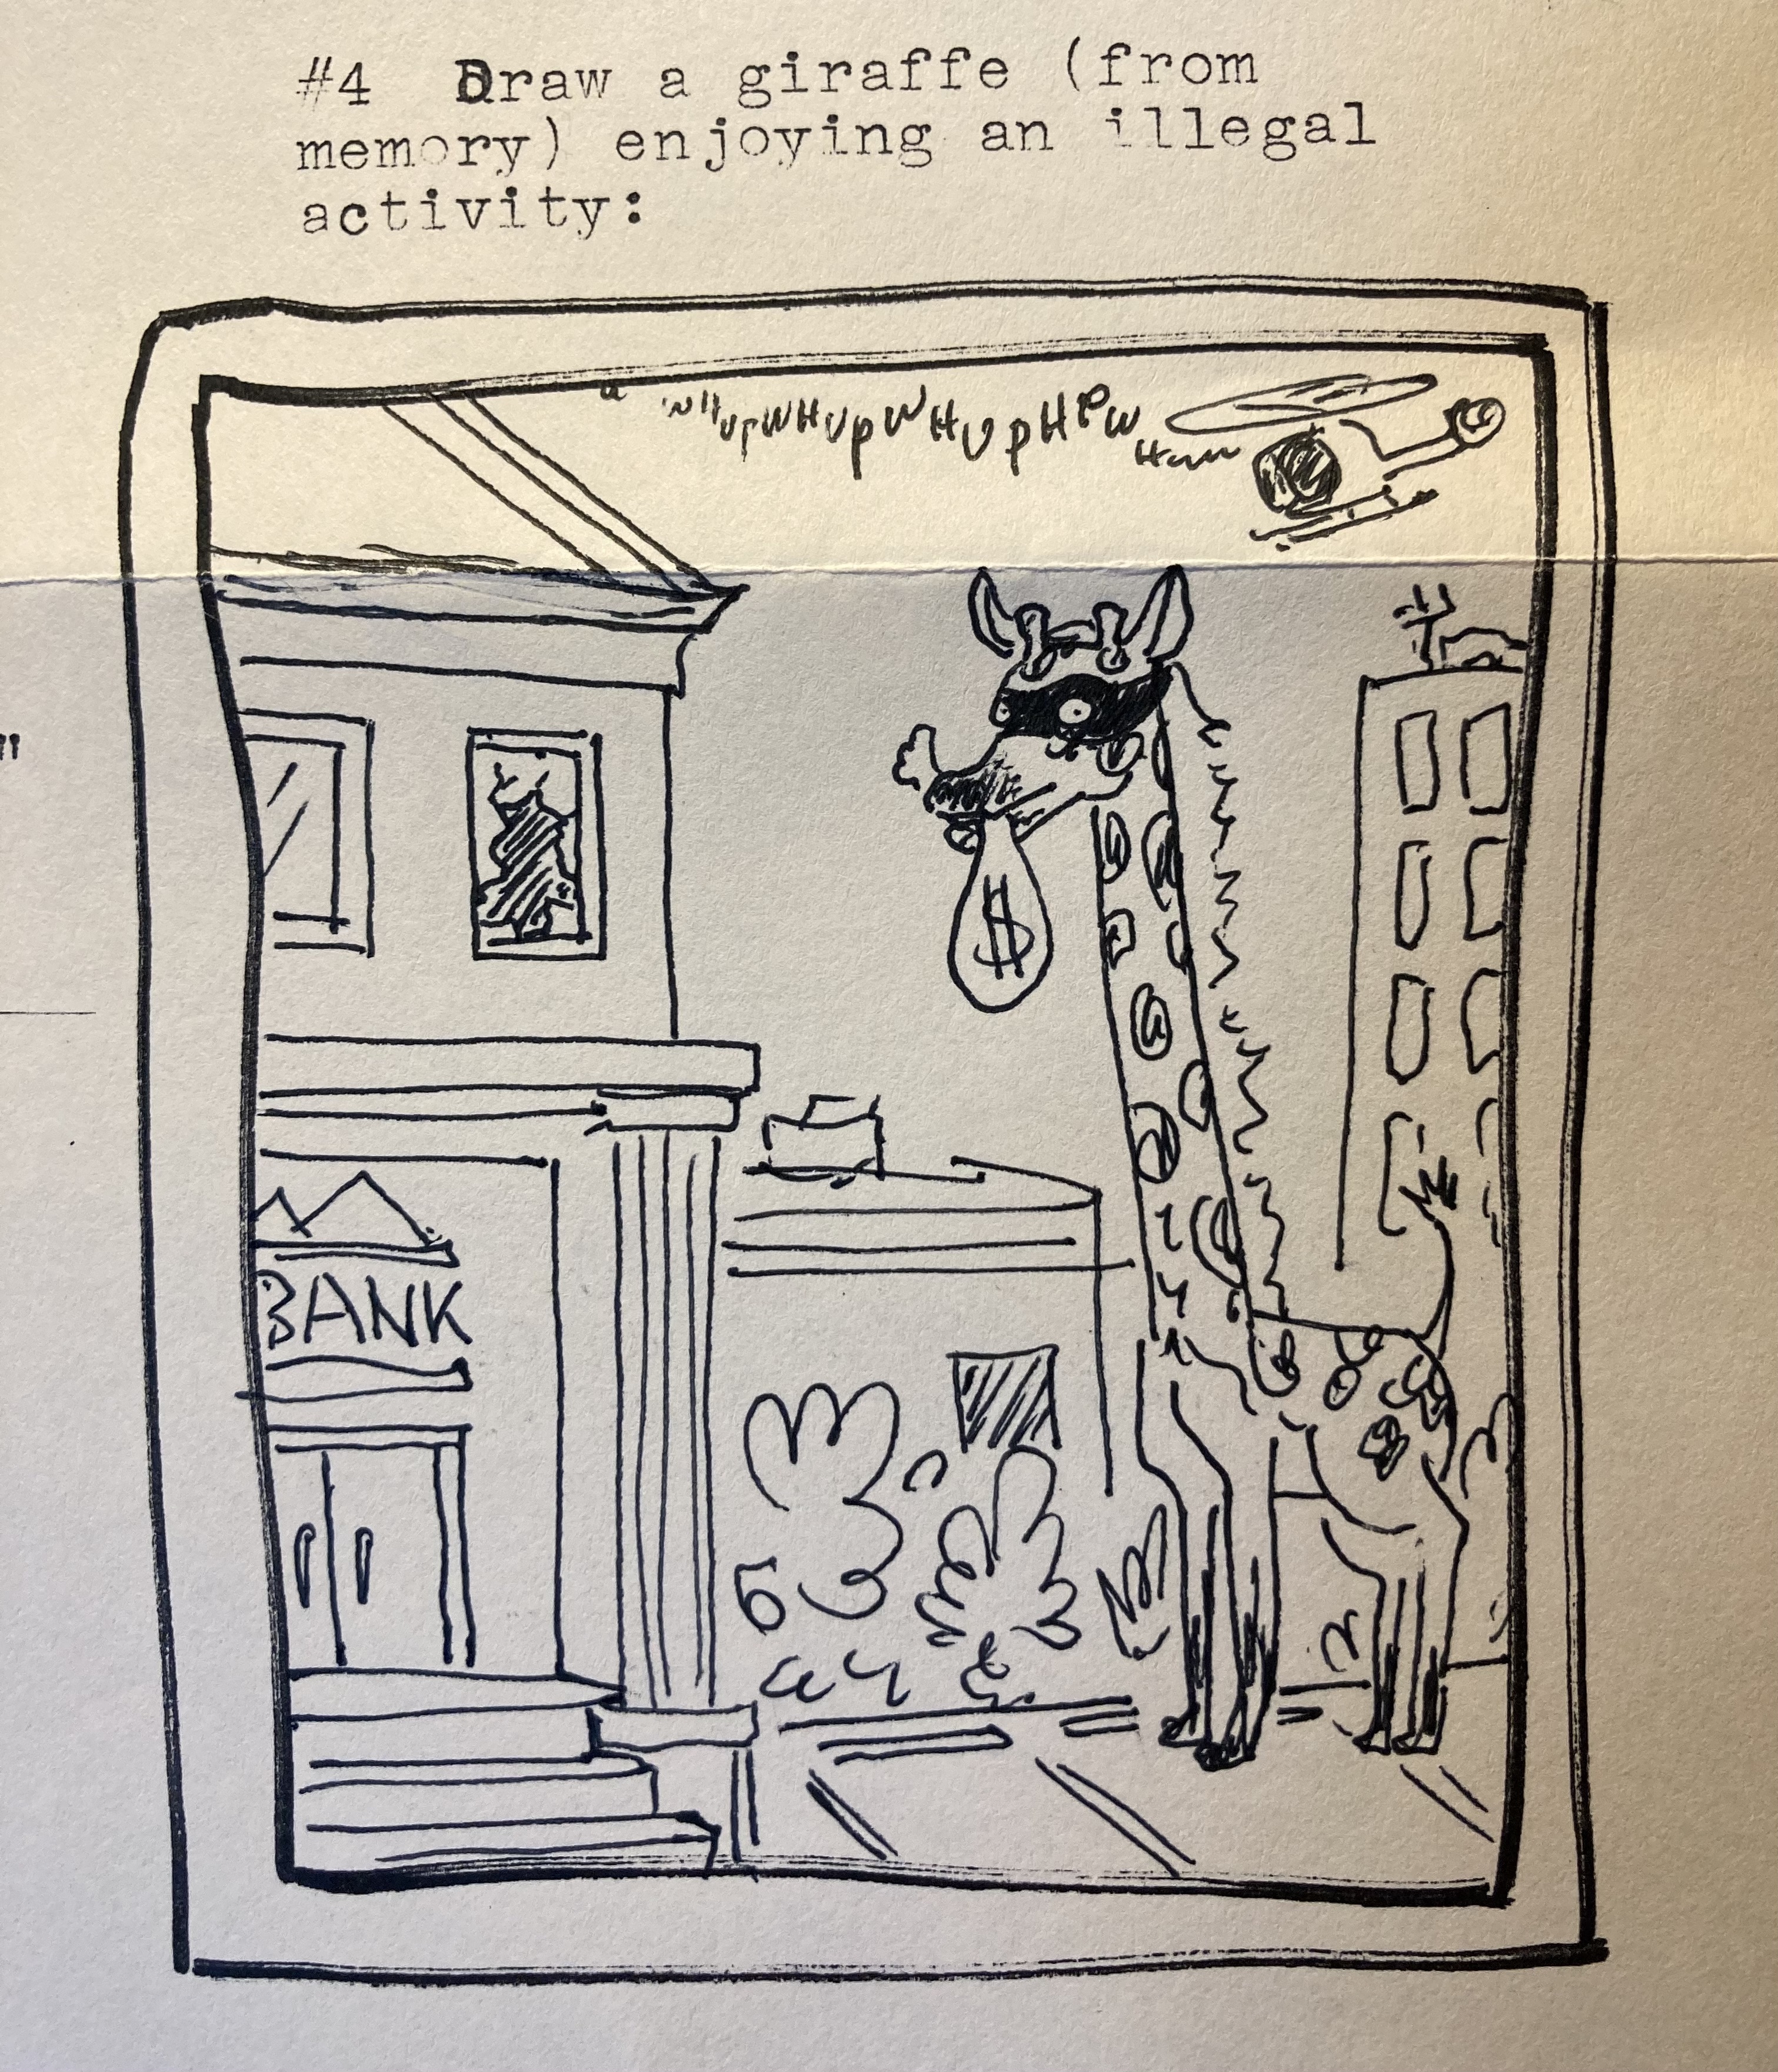 #4 Draw a giraffe (from
memory) enjoying an illegal
activity:
WHUPWHUPWHUPH
$
BANK
"